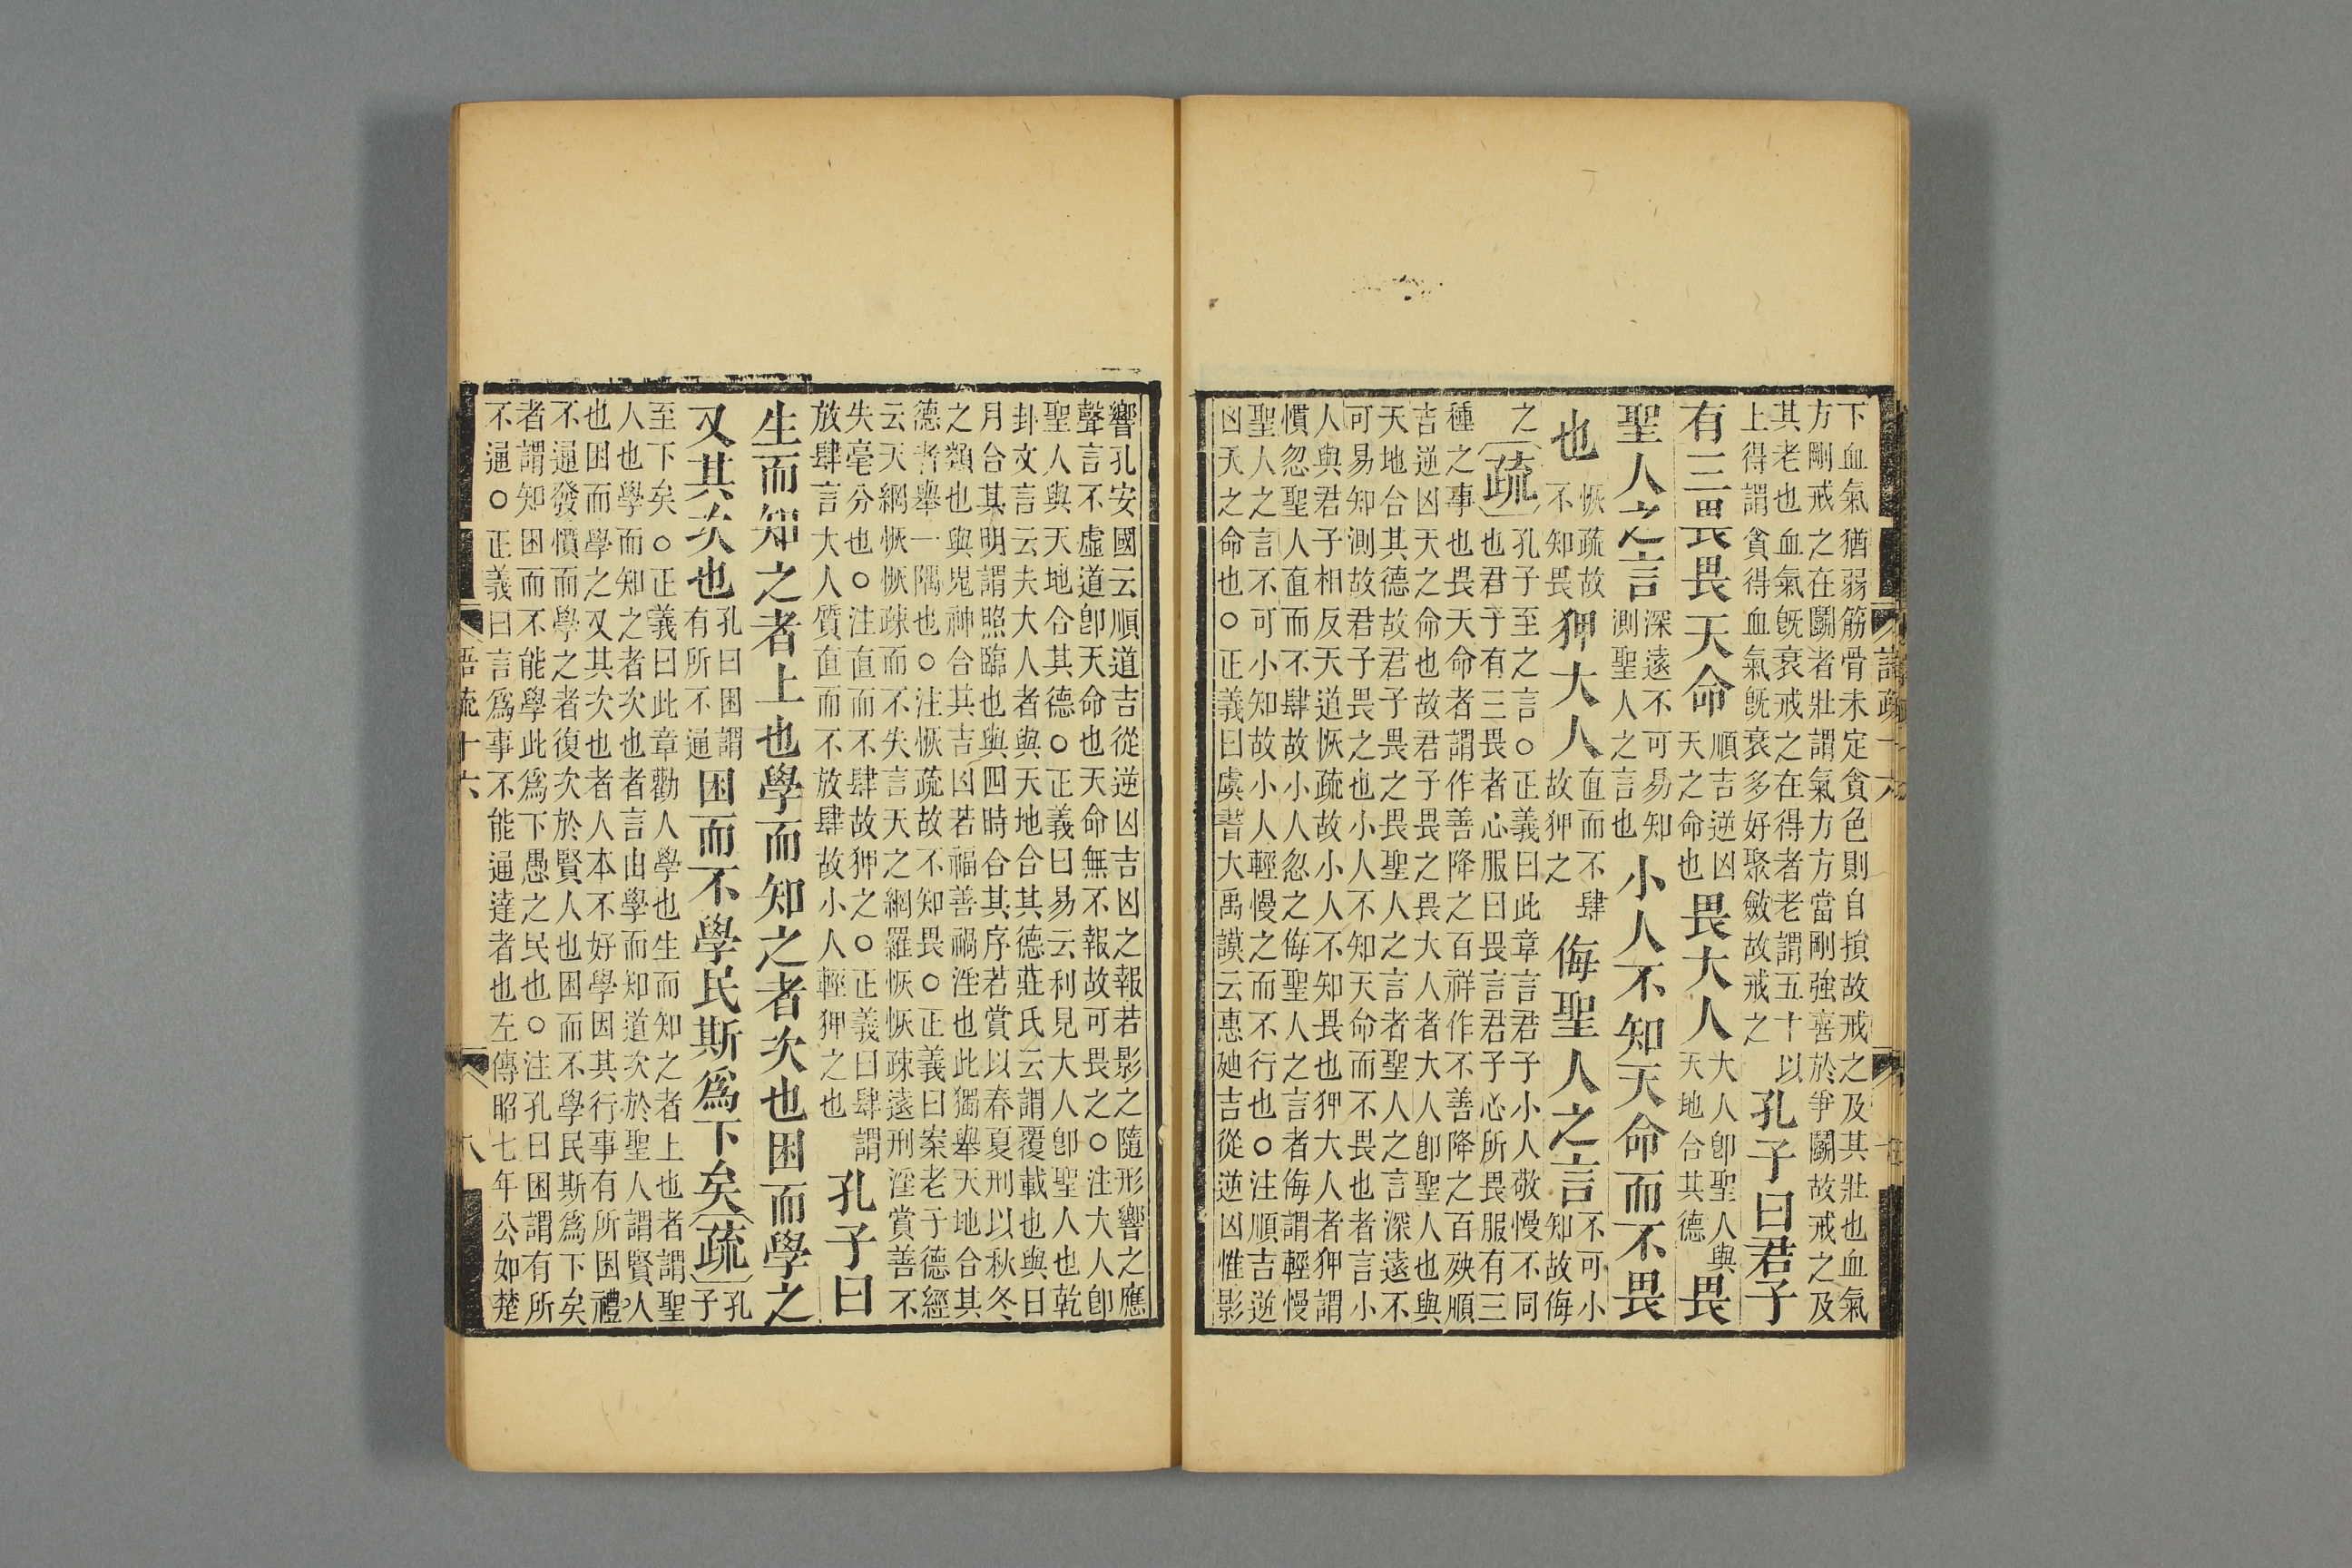 下血氣猶弱筋骨未定貪色則自損故戒之及其壯也血氣
方剛戒之在鬭者壯謂氣方方當剛強喜於爭鬭故戒之及
其老也血氣旣衰戒之在得者老謂五十以
上得謂貪得血氣旣衰多好聚斂故戒之
孔子曰君子
有三畏畏天命
順吉逆凶
天之命也
畏大人
大人卽聖人與
天地合其德
畏
聖人之言
深遠不可易知
測聖人之言也
小人不知天命而不畏
也
恢疏故
不知畏
狎大人
直而不肆
故狎之
侮聖人之言
不可小
知故侮
之
疏
孔子至之言○正義曰此章言君子小人敬慢不同
也君子有三畏者心服曰畏言君子心所畏服有三
種之事也畏天命者謂作善降之百祥作不善降之百殃順
吉逆凶天之命也故君子畏之畏大人者大人卽聖人也與
天地合其德故君子畏之畏聖人之言者聖人之言深遠不
可易知測故君子畏之也小人不知天命而不畏也者言小
人與君子相反天道恢疏故小人不知畏也狎大人者狎謂
慣忽聖人直而不肆故小人忽之侮聖人之言者侮謂輕慢
聖人之言不可小知故小人輕慢之而不行也○注順吉逆
凶天之命也○正義曰虞書大禹謨云惠迪吉從逆凶惟影
響孔安國云順道吉從逆凶吉凶之報若影之隨形響之應
聲言不虛道卽天命也天命無不報故可畏之○注大人卽
聖人與天地合其德○正義曰易云利見大人卽聖人也乾
卦文言云夫大人者與天地合其德莊氏云謂覆載也與日
月合其明謂照臨也與四時合其序若賞以春夏刑以秋冬
之類也與鬼神合其吉凶若福善禍淫也此獨舉天地合其
德者舉一隅也○注恢疏故不知畏○正義曰案老子德經
云天網恢恢疎而不失言天之網羅恢恢疎遠刑淫賞善不
失毫分也○注直而不肆故狎之○正義曰肆謂
放肆言大人質直而不放肆故小人輕狎之也
孔子曰
生而知之者上也學而知之者次也困而學之
又其次也
孔曰困謂
有所不通
困而不學民斯爲下矣
疏
孔
子
至下矣○正義曰此章勸人學也生而知之者上也者謂聖
人也學而知之者次也者言由學而知道次於聖人謂賢人
也困而學之又其次也者人本不好學因其行事有所困禮
不通發憤而學之者復次於賢人也困而不學民斯爲下矣
者謂知困而不能學此爲下愚之民也○注孔曰困謂有所
不通○正義曰言爲事不能通達者也左傳昭七年公如楚
語疏十六
八